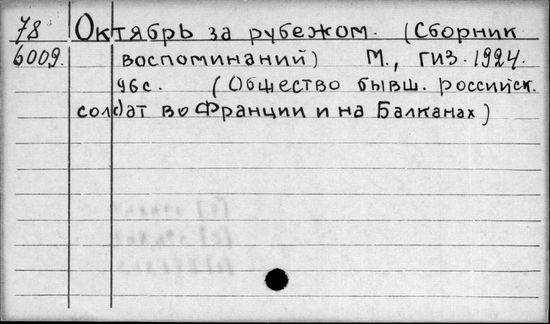 78 Октябрь за рубежом. (Сборник
6009. воспоминаний) М., гиз. 1924.
96с. (Общество бывш. российск.
солдат во Франции и на Балканах)